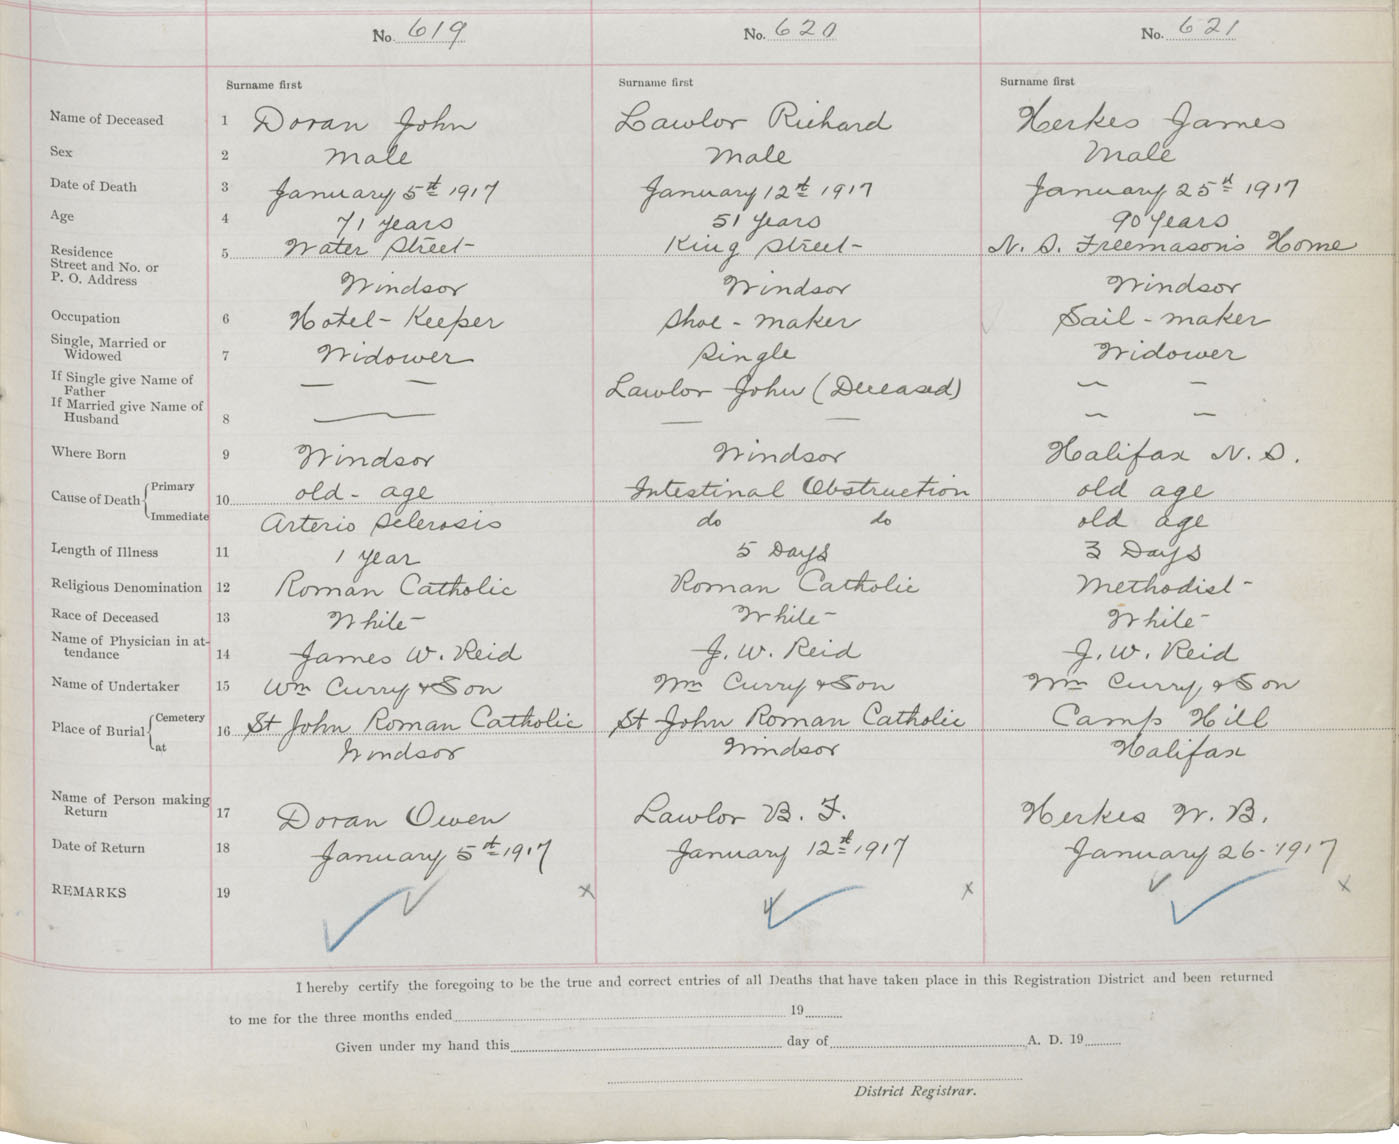 No. 619 No. 620 No. 621
Surname first Surname first Surname first
Name of Deceased 1 Doran John Lawlor Richard Herkes James
Sex 2 Male Male Male
Date of Death 3 January 5th 1917 January 12th 1917 January 25th 1917
Age 4 71 years 51 years 90 years
Residence 5 Water Street King Street N. S. Freemason's Home
Street and No. or
P. O. Address Windsor Windsor Windsor
Occupation 6 Hotel-Keeper Shoe-maker Sail-maker
Single, Married or
Widowed 7 Widower Single Widower
If Single give Name of
Father — — Lawlor John (Deceased) — —
If Married give Name of
Husband 8 — — — — —
Where Born 9 Windsor Windsor Halifax N. S.
Cause of Death { Primary 10 old-age Intestinal Obstruction old age
Immediate Arterio Sclerosis do do old age
Length of Illness 11 1 year 5 Days 3 Days
Religious Denomination 12 Roman Catholic Roman Catholic Methodist
Race of Deceased 13 White White White
Name of Physician in at-
tendance 14 James W. Reid J. W. Reid J. W. Reid
Name of Undertaker 15 Wm Curry & Son Wm Curry & Son Wm Curry & Son
Place of Burial { Cemetery 16 St John Roman Catholic St John Roman Catholic Camp Hill
at Windsor Windsor Halifax
Name of Person making
Return 17 Doran Owen Lawlor B. F. Herkes W. B.
Date of Return 18 January 5th 1917 January 12th 1917 January 26-1917
REMARKS 19 x x x
I hereby certify the foregoing to be the true and correct entries of all Deaths that have taken place in this Registration District and been returned
to me for the three months ended 19
Given under my hand this day of A. D. 19
District Registrar.